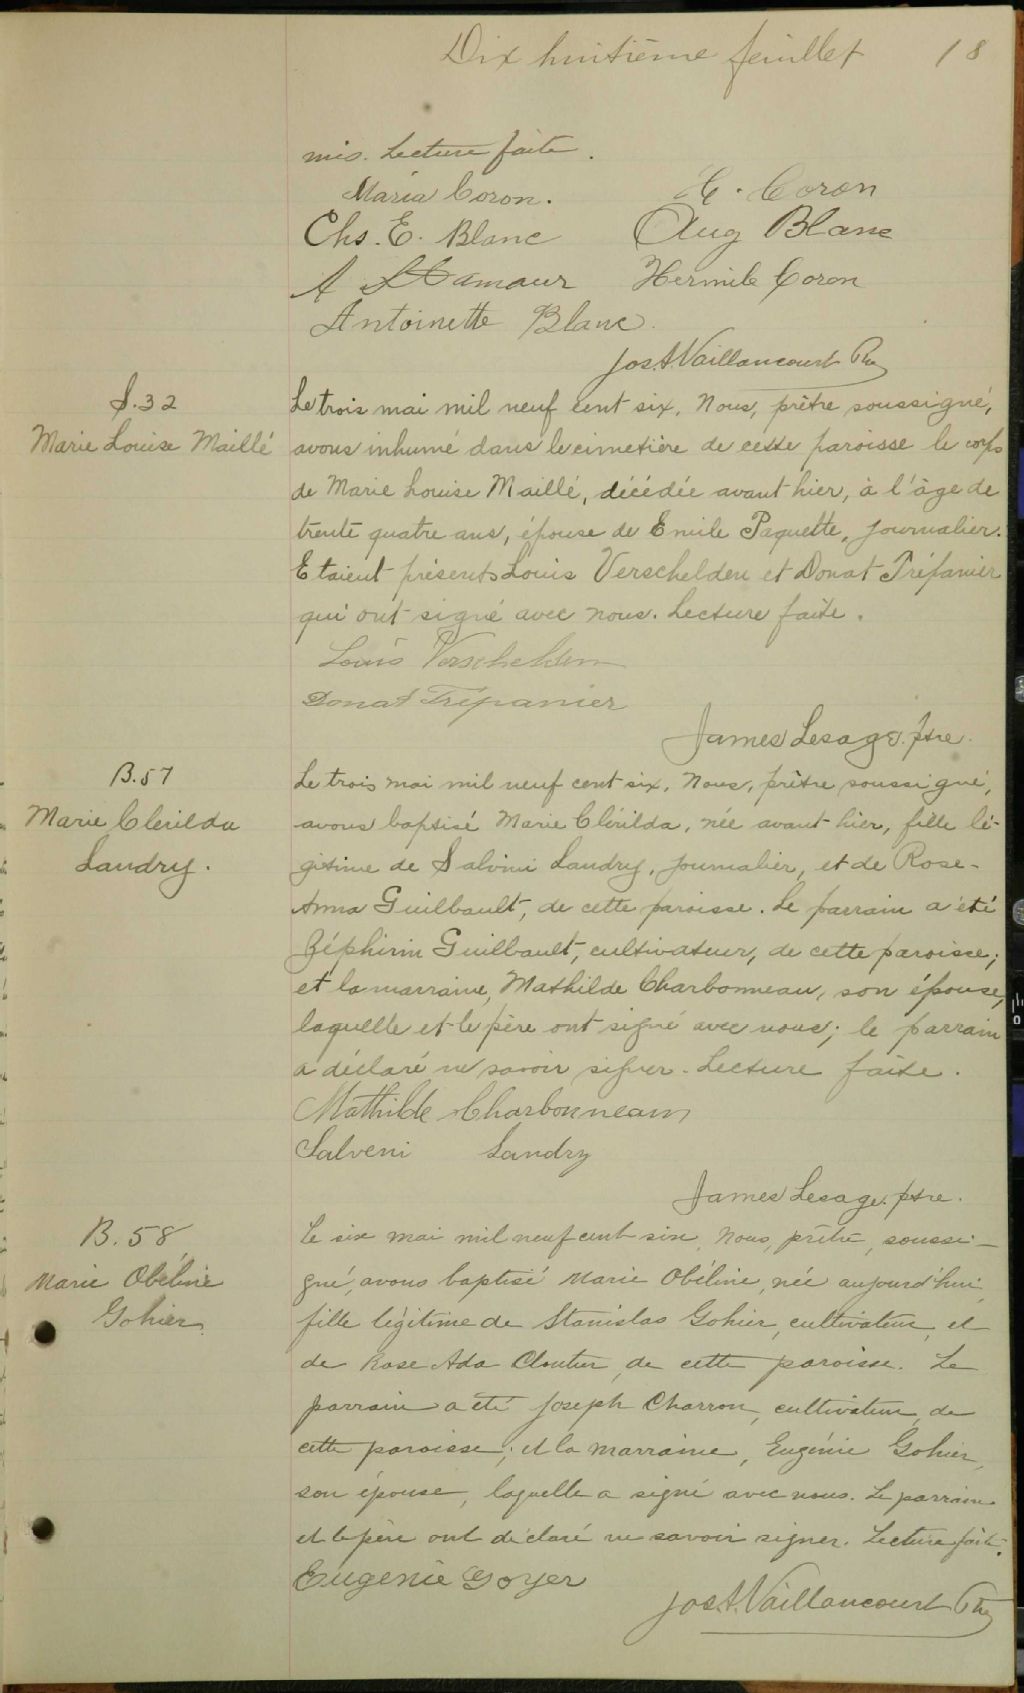 Dix huitième feuillet 18
mis. Lecture faite.
Maria Coron. H. Coron
Chs. E. Blanc Aug Blanc
A Hermile Coron
Antoinette Blanc.
Jos. A. Vaillancourt Ptre
S. 32
Marie Louise Maillé
Le trois mai mil neuf cent six, Nous, prêtre soussigné,
avons inhumé dans le cimetière de cette paroisse le corps
de Marie Louise Maillé, décédée avant hier, à l'âge de
trente quatre ans, épouse de Emile Paquette, journalier.
Etaient présents Louis Verschelden et Donat Trépanier
qui ont signé avec nous. Lecture faite.
Louis Verschelden
Donat Trépanier
James Lesage, ptre.
B. 57
Marie Clerilda
Landry.
Le trois mai mil neuf cent six, Nous, prêtre soussigné,
avons baptisé Marie Clérilda, née avant hier, fille lé-
gitime de Salvini Landry, journalier, et de Rose-
Anna Guilbault, de cette paroisse. Le parrain a été
Zéphirin Guilbault, cultivateur, de cette paroisse;
et la marraine, Mathilde Charbonneau, son épouse,
laquelle et le père ont signé avec nous; le parrain
a déclaré ne savoir signer. Lecture faite.
Mathilde Charbonneau
Salveni Landry
James Lesage. ptre.
B. 58
Marie Obéline
Gohier.
Le six mai mil neuf cent six, Nous, prêtre, soussi-
gné, avons baptisé Marie Obéline, née aujourd'hui,
fille légitime de Stanislas Gohier, cultivateur, et
de Rose Ada Cloutier, de cette paroisse. Le
parrain a été Joseph Charron, cultivateur, de
cette paroisse; et la marraine, Eugénie Gohier,
son épouse, laquelle a signé avec nous. Le parrain
et le père ont déclaré ne savoir signer. Lecture faite.
Eugenie Goyer
Jos. A. Vaillancourt Ptre